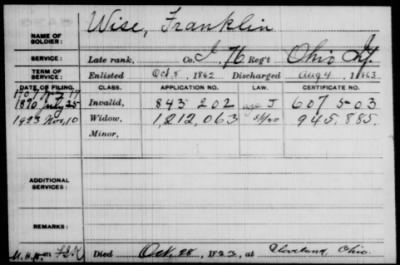 Wise, Franklin
NAME OF SOLDIER:
SERVICE: Late rank, Co. I, 76 Reg't Ohio Inf.
TERM OF SERVICE: Enlisted Oct. 8, 1862 Discharged Aug 4, 1863
DATE OF FILING. CLASS. APPLICATION NO. LAW. CERTIFICATE NO.
1890 July 25 Invalid, 843 202 J 607 503
1923 Nov, 10 Widow, 1,212,063 945,885.
Minor,
ADDITIONAL SERVICES:
REMARKS:
Died Oct. 1923, at Cleveland, Ohio.